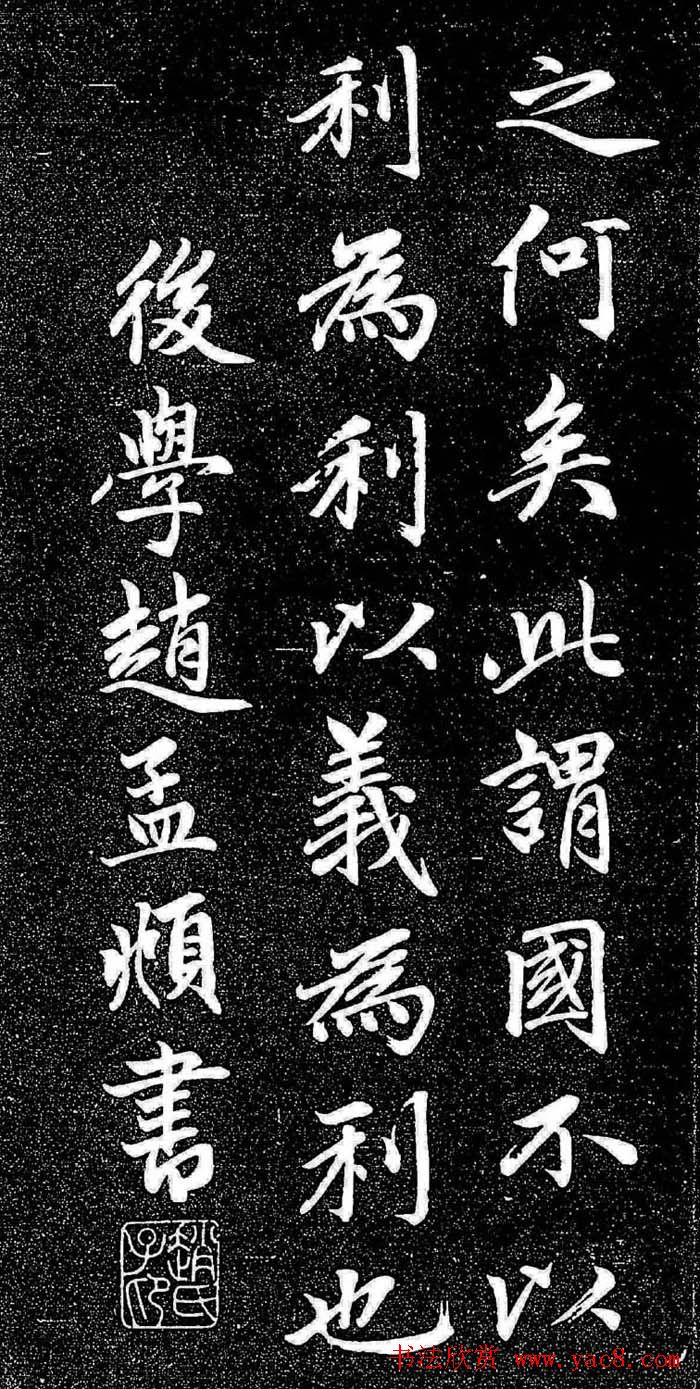 之何矣此謂國不以
利為利以義為利也
後學趙孟頫書
趙氏子印
书法欣赏 www.yac8.com